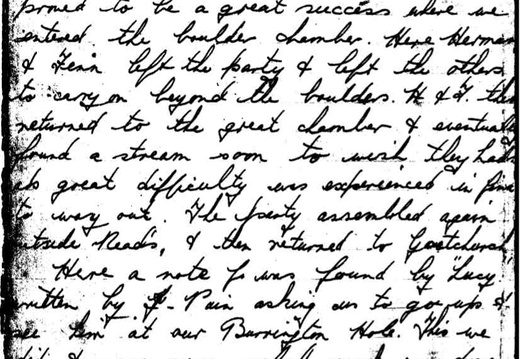 proved to be a great success where we
entered the boulder chamber. Here Herman
& Fenn left the party & left the others
to carry on beyond the boulders. H & F. then
returned to the great chamber & eventually
found a stream soon to wish they had
great difficulty was experienced in
way out. The party assembled again
Read's, & then returned to Goatchurch
Here a note was found by "Lucy
written by Pain asking us to go up &
see him at our Burrington Hole. This we